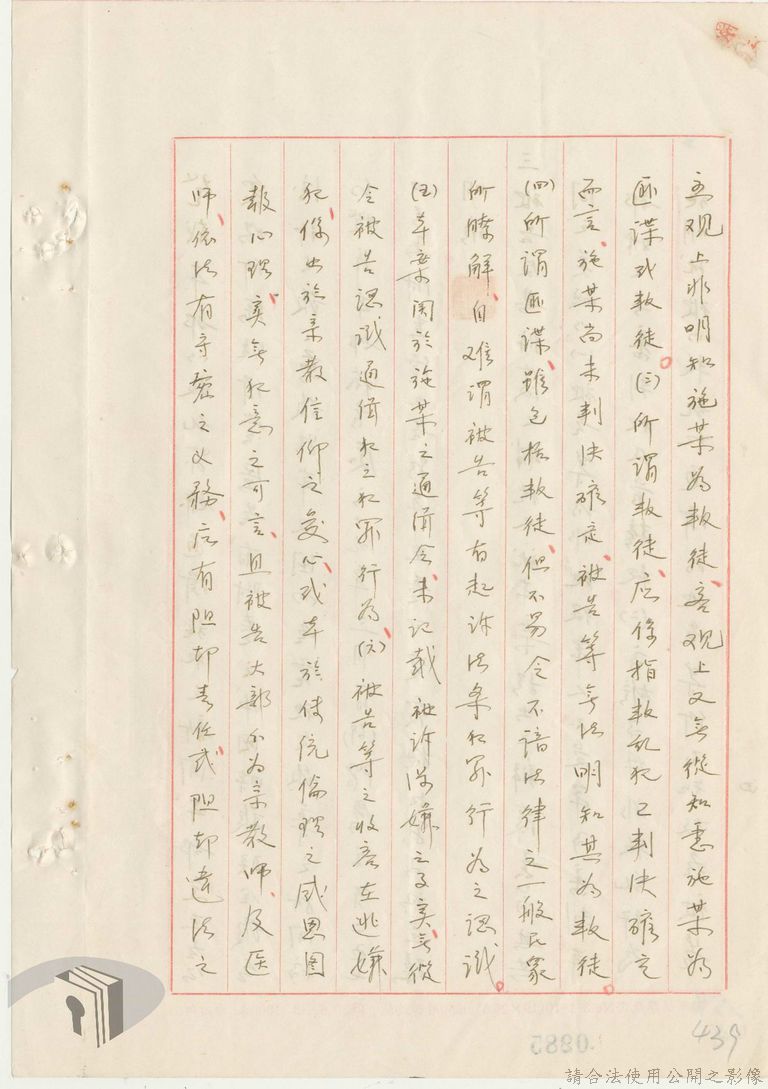 主观上非明知施某為叛徒、客观上又無從知悉施某為
匪諜或叛徒。(三)所謂叛徒、应係指叛乱犯已判決確定
而言、施某尚未判決確定、被告等無法明知其為叛徒。
(四)所謂匪諜、雖包括叛徒、但不易令不諳法律之一般民眾
所瞭解、自难謂被告等有起诉法条犯罪行為之認識。
(五)本案関於施某之通缉令、未記載被诉涉嫌之事实、無從
令被告認識通缉犯之犯罪行為、(六)被告等之收容在逃嫌
犯、係出於宗教信仰之爱心、或本於传统倫理之感恩图
報心理、实無犯意之可言、且被告大部分为宗教师、及医
师、依法有守密之义務、应有阻却責任或阻却違法之
439
0885
請合法使用公開之影像